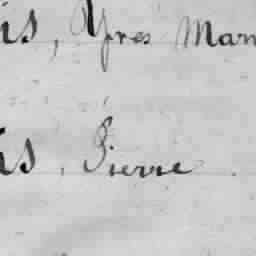 is, Yves Mar
s, Pierre